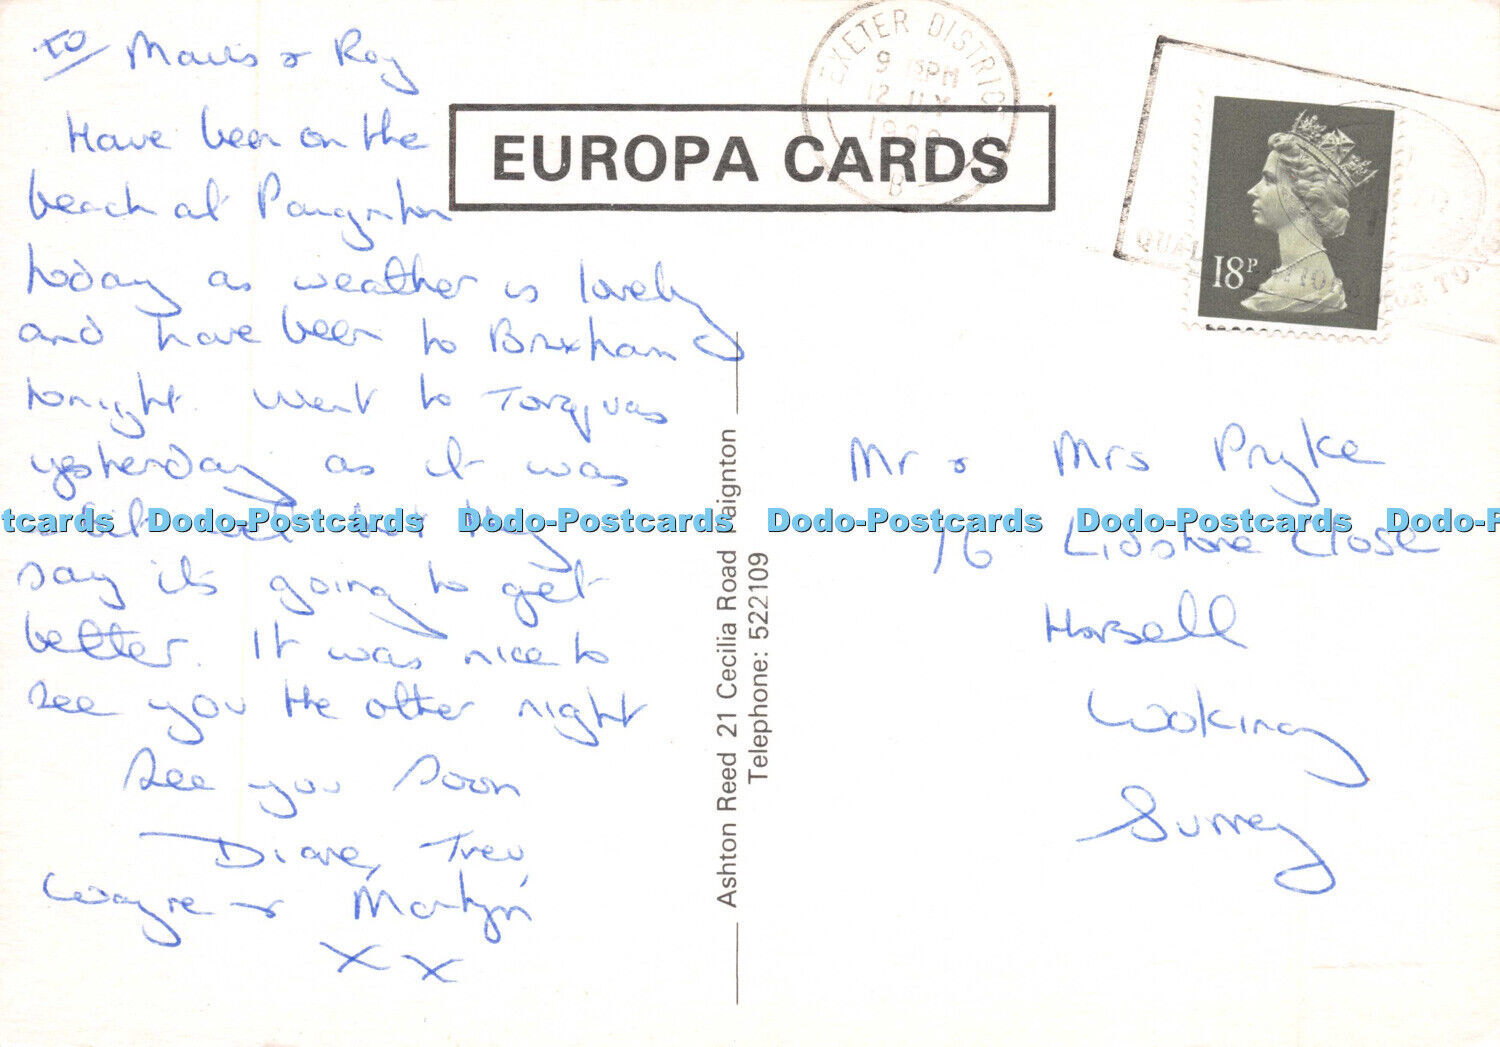 To Mavis & Roy
Have been on the
beach at Paignton
today as weather is lovely
and have been to Brixham
tonight. Went to Torquas
yesterday as it was
say it's going to get
better. It was nice to
see you the other night
See you soon
Diane, Trev
Wayne & Martyn
X X
EUROPA CARDS
EXETER DISTRICT
18P
Ashton Reed 21 Cecilia Road Paignton
Telephone: 522109
Mr & Mrs Pryke
Lidstone Close
Horsell
Woking
Surrey
tcards Dodo-Postcards Dodo-Postcards Dodo-Postcards Dodo-Postcards Dodo-P